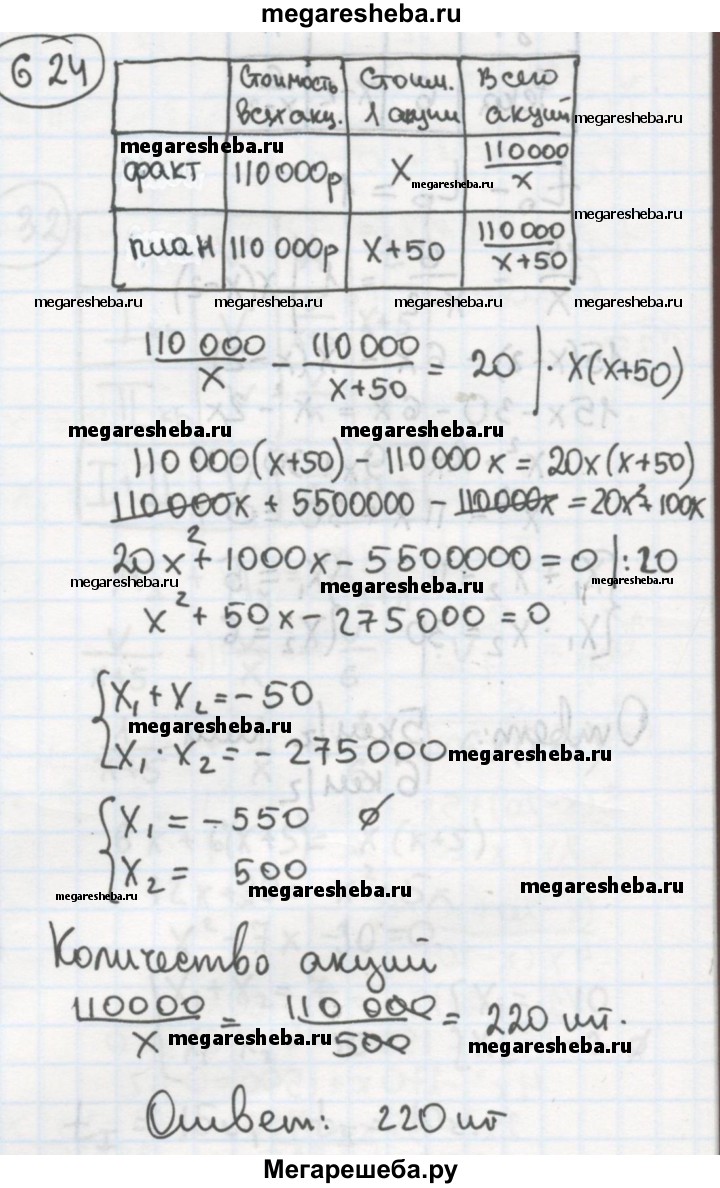 megaresheba.ru
624
Стоимость всех акц. Стоим. 1 акции Всего акций
megaresheba.ru
факт 110 000р x 110000/x
megaresheba.ru
план 110 000р x+50 110 000/x+50
megaresheba.ru megaresheba.ru megaresheba.ru megaresheba.ru
110 000/x - 110 000/x+50 = 20 | · x(x+50)
megaresheba.ru megaresheba.ru
110 000(x+50) - 110 000x = 20x(x+50)
110 000x + 5500000 - 110 000x = 20x²+100x
20x²+1000x-5500000=0 |:20
megaresheba.ru megaresheba.ru megaresheba.ru
x²+50x-275000=0
{x₁+x₂=-50
megaresheba.ru
x₁·x₂=-275000 megaresheba.ru
{x₁=-550 ∅
x₂= 500
megaresheba.ru megaresheba.ru megaresheba.ru
Количество акций
110000/x = 110 000/500 = 220 шт.
megaresheba.ru megaresheba.ru
Ответ: 220 шт
Мегарешеба.ру